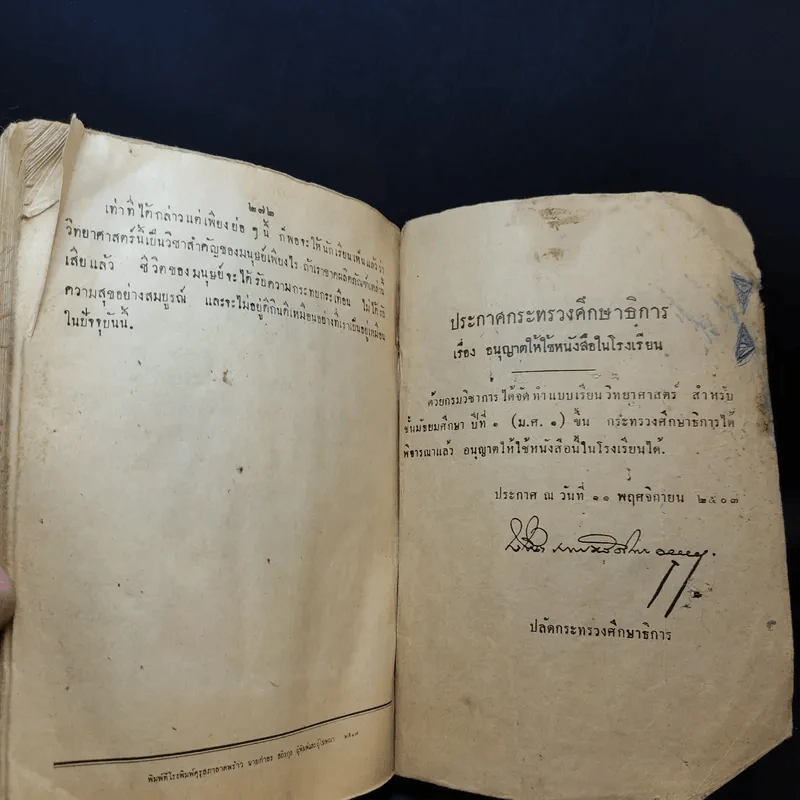 ๒๗๒
เท่าที่ได้กล่าวแต่เพียงย่อ ๆ นี้ ก็พอจะให้นักเรียนเห็นแล้วว่า
วิทยาศาสตร์นี้เป็นวิชาสำคัญของมนุษย์เพียงไร ถ้าเราขาดผลิตภัณฑ์เหล่านี้
เสียแล้ว ชีวิตของมนุษย์จะได้รับความกระทบกระเทือน ไม่ได้รับ
ความสุขอย่างสมบูรณ์ และจะไม่อยู่ดีกินดีเหมือนอย่างที่เราเป็นอยู่เหมือน
ในปัจจุบันนี้.
พิมพ์ที่โรงพิมพ์คุรุสภาลาดพร้าว นายกำธร สถิรกุล ผู้พิมพ์และผู้โฆษณา
ประกาศกระทรวงศึกษาธิการ
เรื่อง อนุญาตให้ใช้หนังสือในโรงเรียน
ด้วยกรมวิชาการได้จัดทำแบบเรียนวิทยาศาสตร์ สำหรับ
ชั้นมัธยมศึกษา ปีที่ ๑ (ม.ศ. ๑) ขึ้น กระทรวงศึกษาธิการได้
พิจารณาแล้ว อนุญาตให้ใช้หนังสือนี้ในโรงเรียนได้.
ประกาศ ณ วันที่ ๑๑ พฤศจิกายน ๒๕๐๓
ปลัดกระทรวงศึกษาธิการ